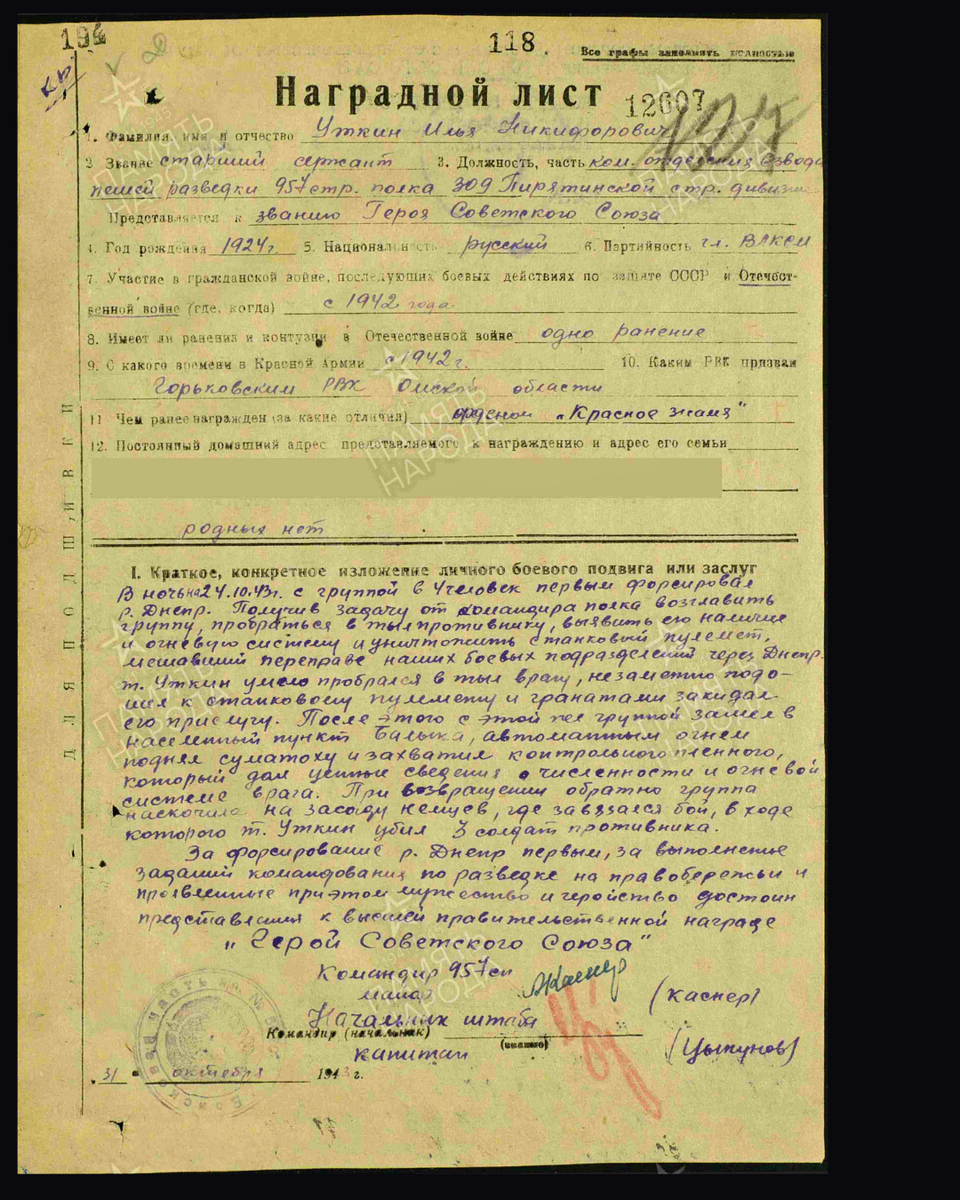 194
118.
Все графы заполнять полностью
Наградной лист
12607
1. Фамилия, имя и отчество Уткин Илья Никифорович
2. Звание старший сержант 3. Должность, часть ком. отделения взвода
пешей разведки 957 стр. полка 309 Пирятинской стр. дивизии
Представляется к званию Героя Советского Союза
4. Год рождения 1924 г. 5. Национальность русский 6. Партийность чл. ВЛКСМ
7. Участие в гражданской войне, последующих боевых действиях по защите СССР и Отечест-
венной войне (где, когда) с 1942 года
8. Имеет ли ранения и контузии в Отечественной войне одно ранение
9. С какого времени в Красной Армии с 1942 г. 10. Каким РВК призван
Горьковским РВК Омской области
11. Чем ранее награжден (за какие отличия) орденом „Красное знамя"
12. Постоянный домашний адрес представляемого к награждению и адрес его семьи
родных нет
ДЛЯ ПОДШИВКИ
I. Краткое, конкретное изложение личного боевого подвига или заслуг
В ночь на 24.10.43г. с группой в 4 человек первым форсировал
р. Днепр. Получив задачу от командира полка возглавить
группу, пробраться в тыл противнику, выявить его наличие
и огневую систему и уничтожить станковый пулемет,
мешавший переправе наших боевых подразделений через Днепр.
т. Уткин умело пробрался в тыл врагу, незаметно подо-
шел к станковому пулемету и гранатами закидал
его прислугу. После этого с этой же группой зашел в
населенный пункт Балыка, автоматным огнем
поднял суматоху и захватил контрольного пленного,
который дал ценные сведения о численности и огневой
системе врага. При возвращении обратно группа
наскочила на засаду немцев, где завязался бой, в ходе
которого т. Уткин убил 3 солдат противника.
За форсирование р. Днепр первым, за выполнение
заданий командования по разведке на правобережьи и
проявленные при этом мужество и геройство достоин
представления к высшей правительственной награде
„Герой Советского Союза"
Командир 957 сп
майор (Каснер)
Начальник штаба
Командир (начальник)
(звание)
капитан (Цыпунов)
31 " октября 1943 г.
ПАМЯТЬ НАРОДА